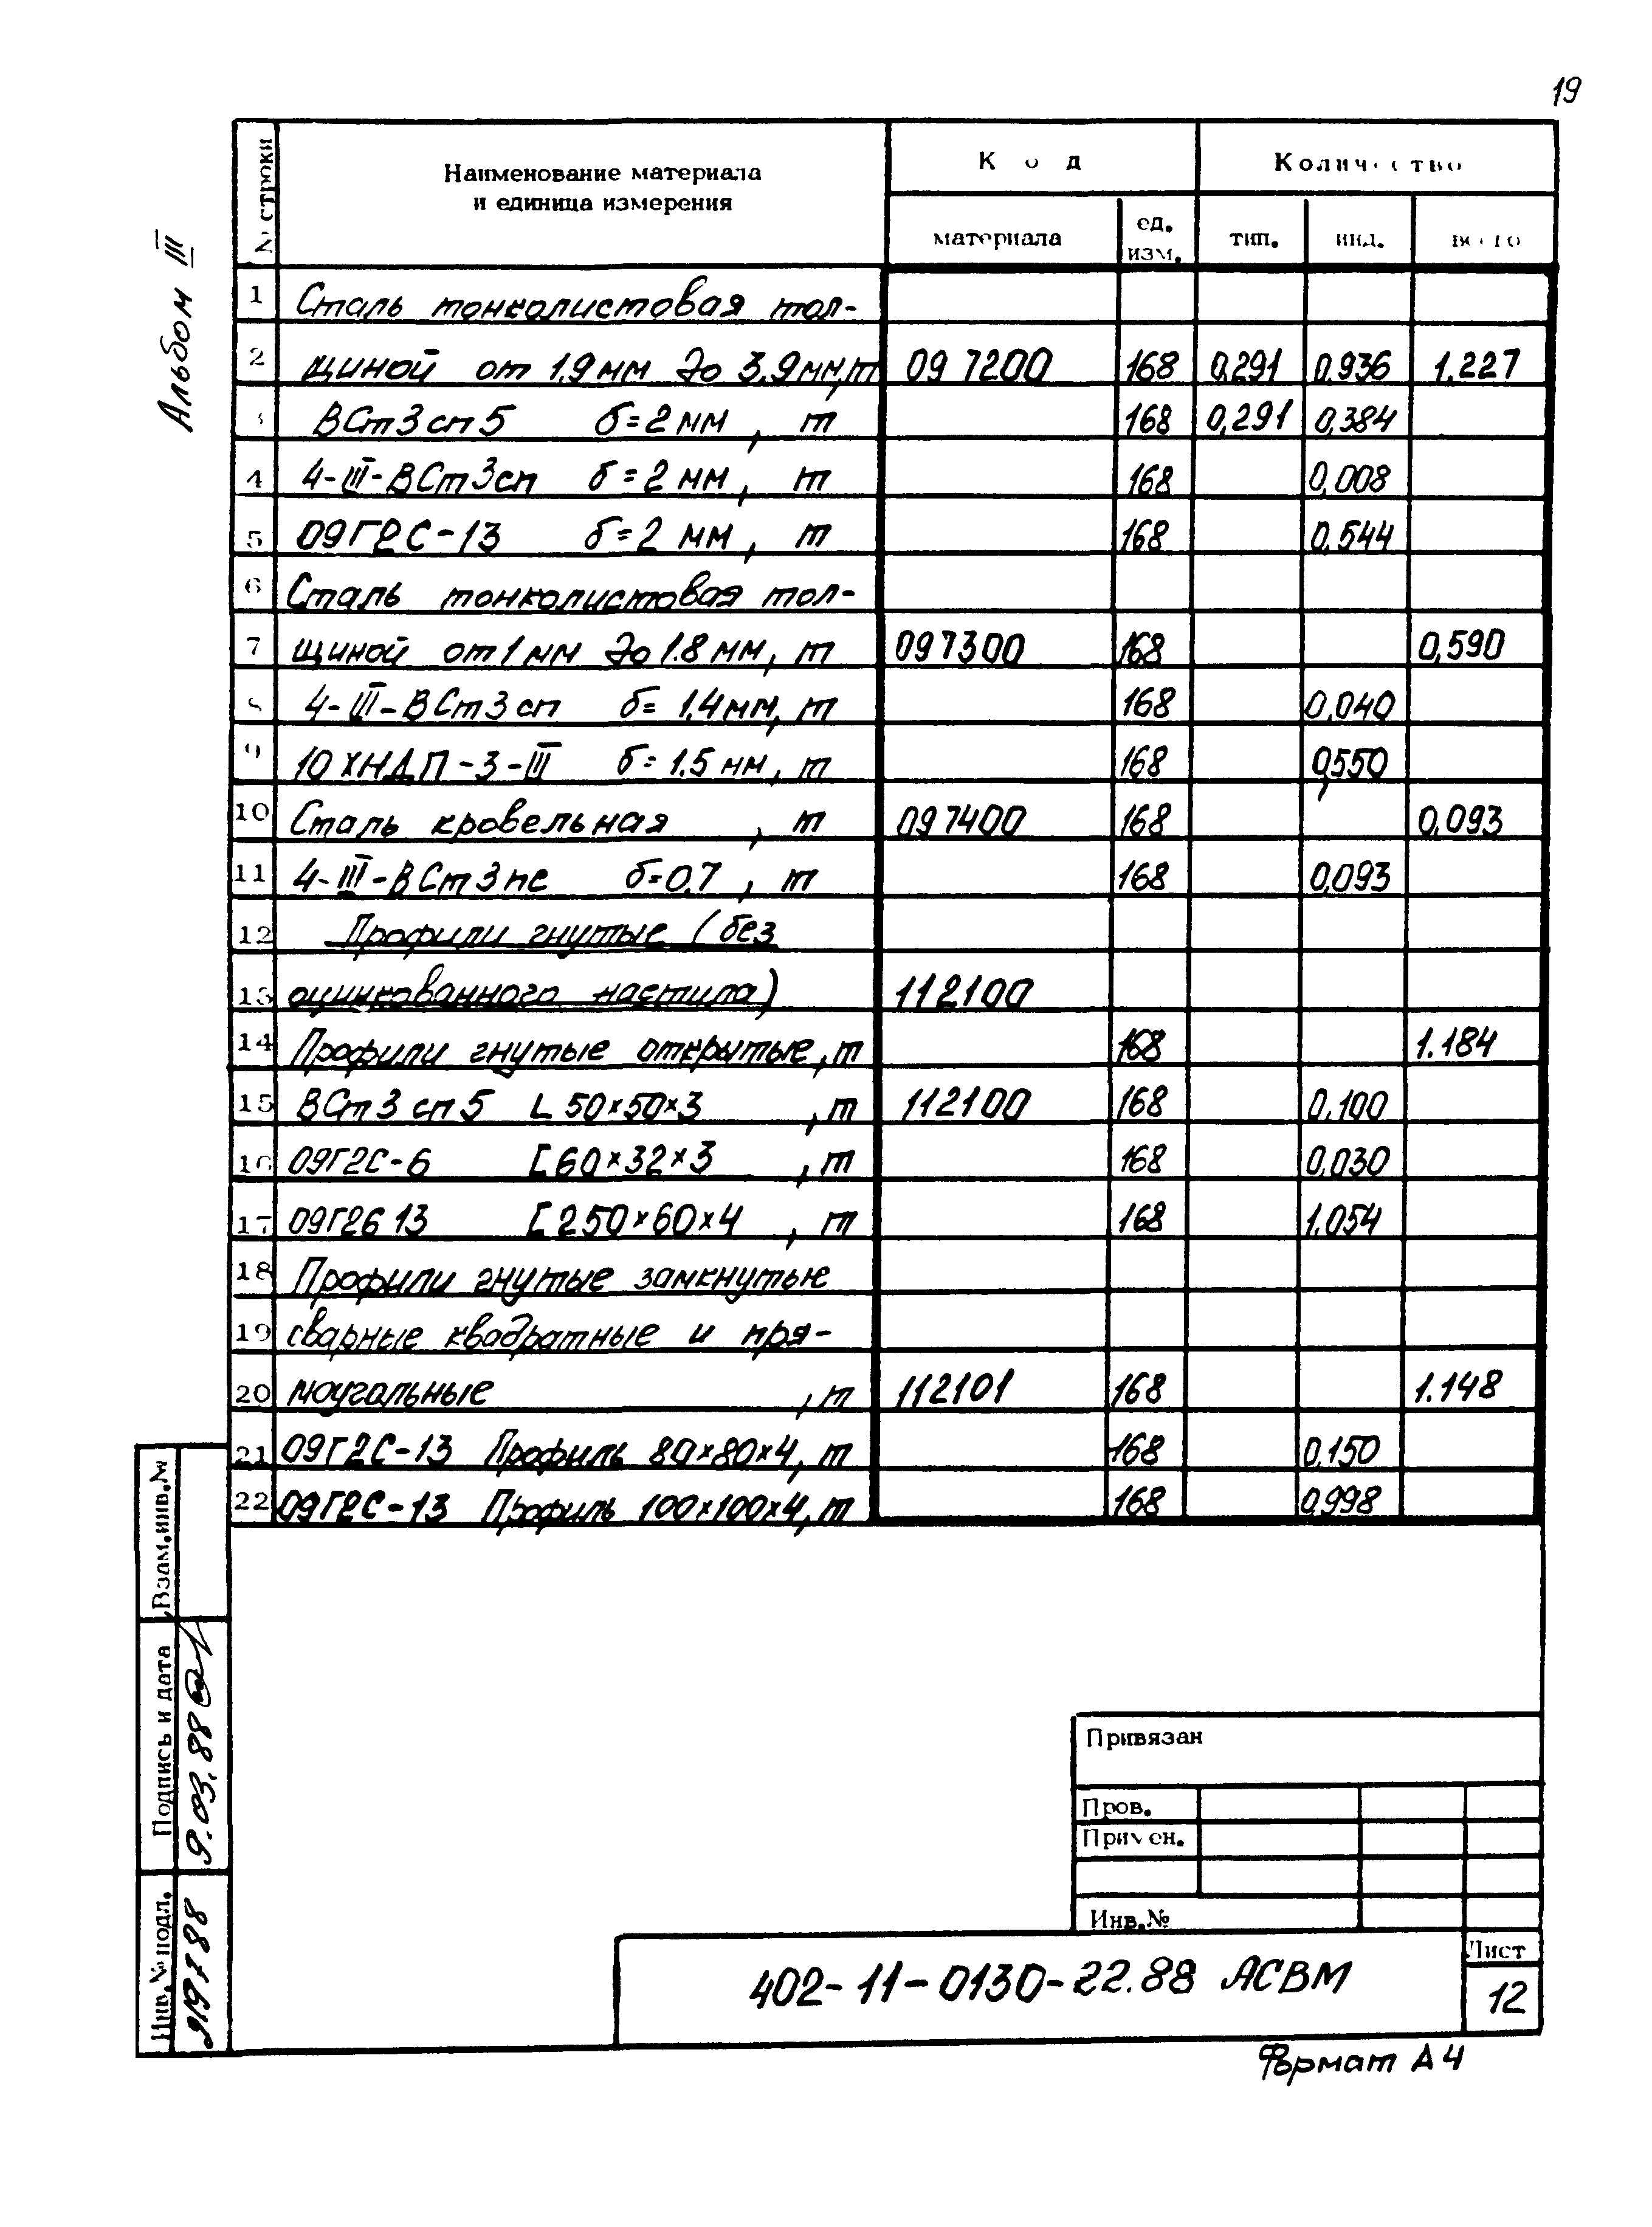 19
Альбом III
№ строки
Наименование материала
и единица измерения
Код
Количество
материала
ед.
изм.
тип.
инд.
всего
1 Сталь тонколистовая тол-
2 щиной от 1.9мм до 3.9мм,т 097200 168 0,291 0,936 1.227
3 ВСт3сп5 б=2мм, т 168 0,291 0,384
4 4-III-ВСт3сп б=2мм, т 168 0,008
5 09Г2С-13 б=2 мм, т 168 0,544
6 Сталь тонколистовая тол-
7 щиной от 1 мм до 1.8 мм, т 097300 168 0,590
8 4-III-ВСт3сп б= 1.4мм, т 168 0,040
9 10ХНДП-3-III б=1.5 мм, т 168 0,550
10 Сталь кровельная , т 097400 168 0,093
11 4-III-ВСт3пс б=0,7 , т 168 0,093
12 Профили гнутые (без
13 оцинкованного настила) 112100
14 Профили гнутые открытые, т 168 1.184
15 ВСт3сп5 L 50×50×3 , т 112100 168 0,100
16 09Г2С-6 [60×32×3 , т 168 0,030
17 09Г2б 13 [250×60×4 , т 168 1.054
18 Профили гнутые замкнутые
19 сварные квадратные и пря-
20 моугальные , т 112101 168 1.148
21 09Г2С-13 Профиль 80×80×4, т 168 0,150
22 09Г2С-13 Профиль 100×100×4, т 168 0,998
Взам.инв.№
Подпись и дата
9.03.88
Инв.№ подл.
Привязан
Пров.
Примен.
Инв.№
402-11-0130-22.88 АСВМ
Лист
12
Формат А4